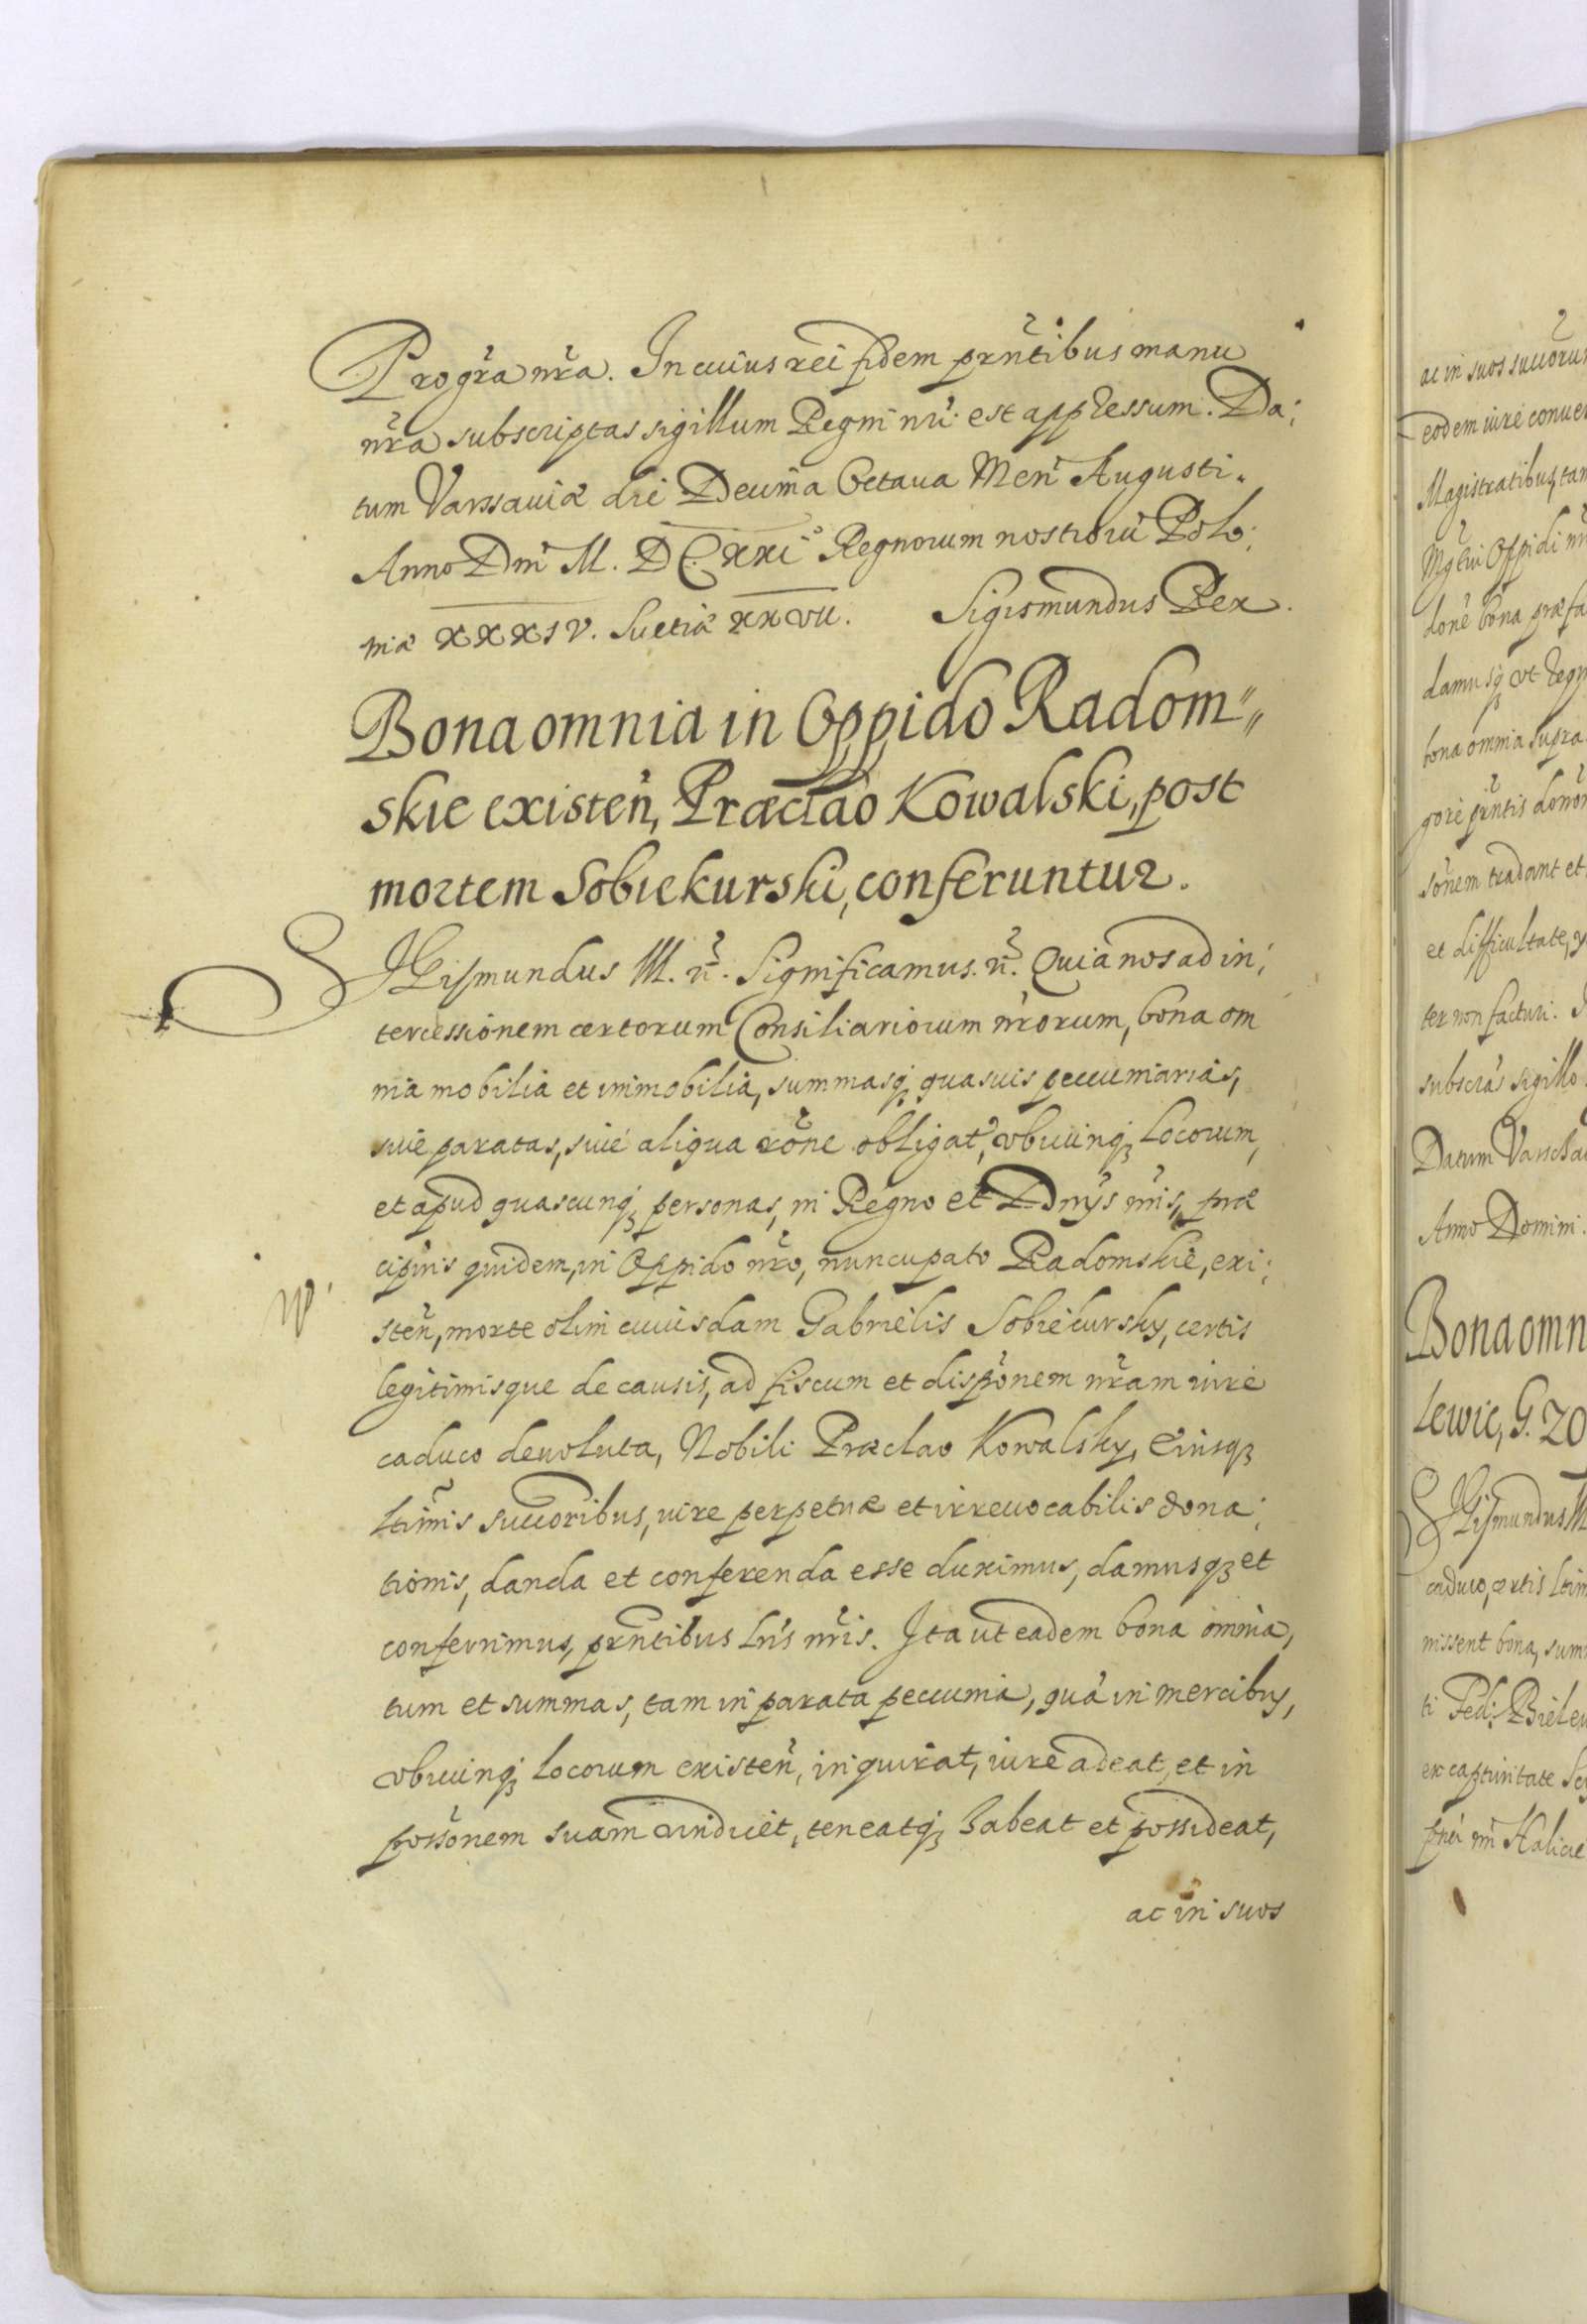 Pro gr̃a nr̃a. In cuius rei fidem prñtibus manu
nr̃a subscriptas sigillum Regni nri: est appressum. Da:
tum Varssauiæ die Decima Octaua Men̄ Augusti.
Anno Dnī M. DC. XXI° Regnorum nostrorū Polo:
niæ XXXIV. Suetiæ XXVII. Sigismundus Rex.
Bona omnia in Oppido Radom„
skie existeñ, Præclao Kowalski, post
mortem Sobiekurski, conferuntur.
SIGismundus III. ñ. Significamus. ñ. Quia nos ad in:
tercessionem certorum Consiliariorum nr̃orum, bona om
nia mobilia et immobilia, summasq; quasuis pecuniarias,
siue paratas, siue aliqua rõne obligat, vbicunq; locorum,
et apud quascunq; personas, in Regno et Dnỹs nr̃is, præ
cipuis quidem, in Oppido nr̃o, nuncupato Radomskie, exi:
steñ, morte olim cuiusdam Gabrielis Sobiekursky, certis
legitimisque de causis, ad fiscum et dispõnem nr̃am iure
caduco deuoluta, Nobili Præclao Kowalsky, Eiusq;
ltimis succoribus, iure perpetuæ et irreuocabilis dona:
tionis, danda et conferenda esse duximus, damusq; et
conferimus, prñtibus Lris nr̃is. Ita ut eadem bona omnia,
tum et summas, tam in parata pecunia, quã in mercibus,
vbicunq; locorum existeñ, inquirat, iure adeat, et in
possõnem suam vindicet, teneatq; habeat et possideat,
ac in suos
W
ac in suos succorum
eodem iure conuer
Magistratibus, tam
Mgtui Oppidi nr
done bona præfa
damusq; vt Regn
bona omnia supra
gore prñtis donõn
sõnem tradant et
et difficultate,
ter non facturi.
subscra sigillo
Datum Varssa
Anno Domini.
Bona omn
lewic, G. 20
SIGismundus III
caduco, certis ltim
nissent bona, sum
ti Fed: Bielen
ex captiuitate
nri Halicie